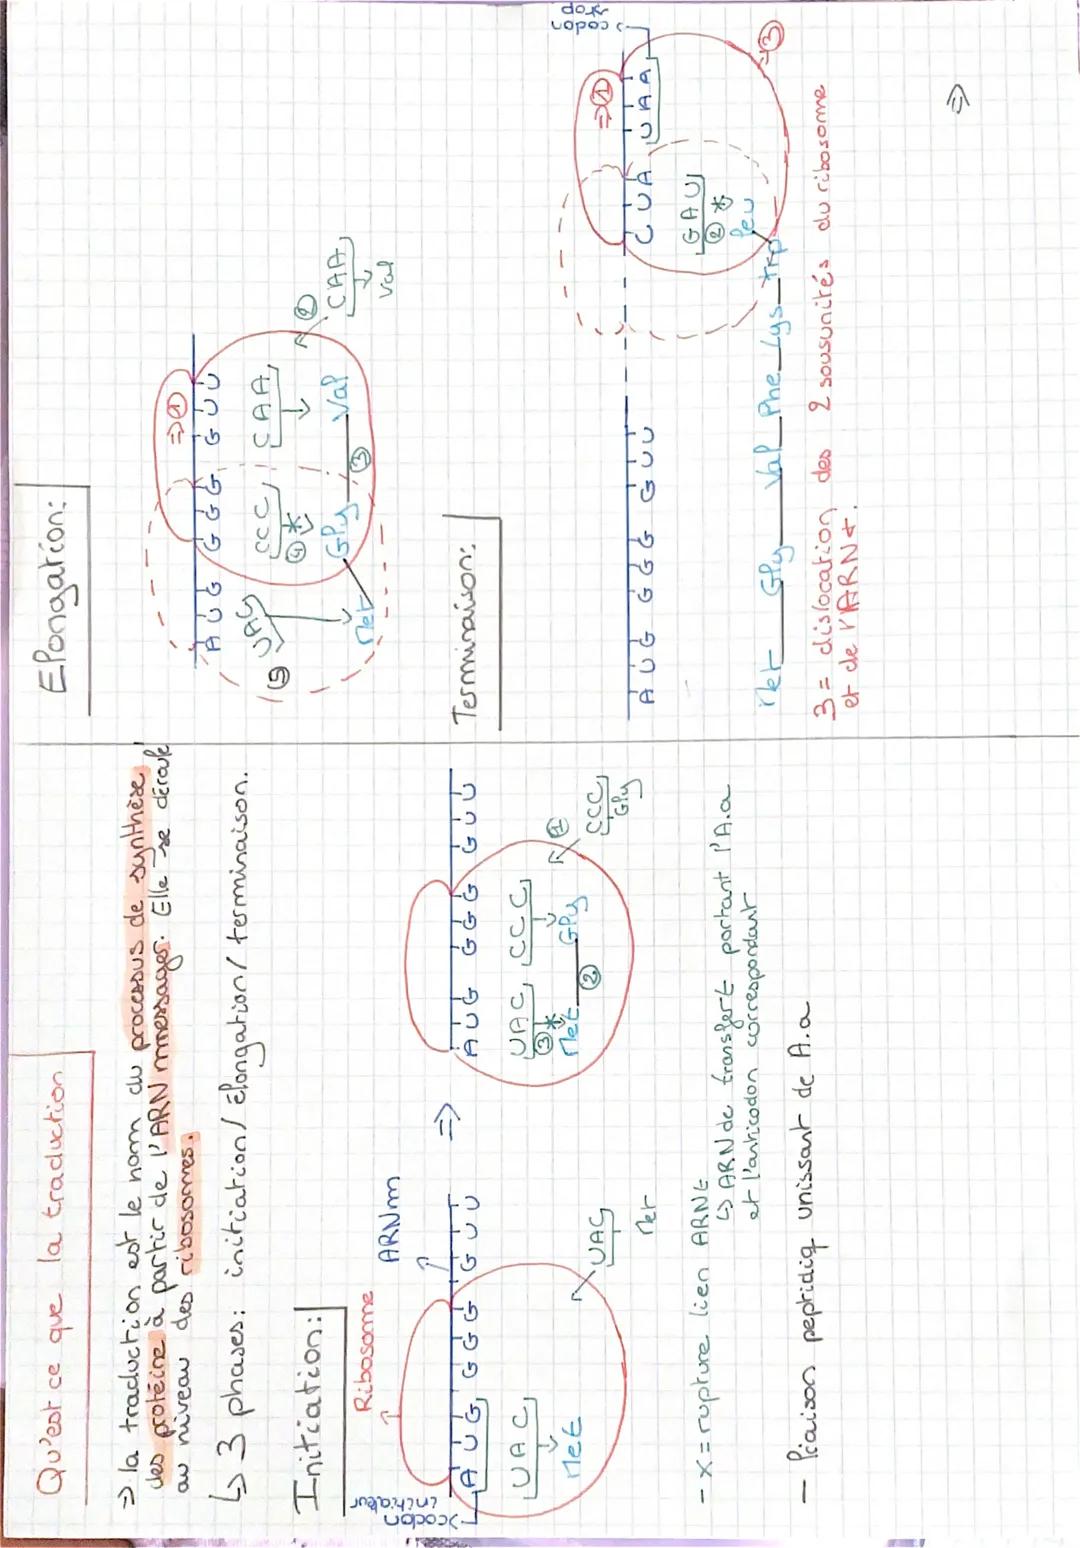 Qu'est ce que la traduction
=> la traduction est le nom du processus de synthèse
des protéine à partir de l'ARN mmessager. Elle se déroule
au niveau des ribosomes.
↳ 3 phases: initiation/ élongation/ terminaison.
Initiation:
Ribosome
ARNm
codon
initiateur
A U G G G G G U U
U A C
Met
UAC
Met
=>
A U G G G G G U U
UAC CCC
③ *
Met Gly
②
①
CCC
Gly
- x = rupture lien ARNt
↳ ARN de transfert portant l'A.a
et l'anticodon correspondant
- liaison peptidiq unissant de A.a
Elongation:
=> ①
A U G G G G G U U
⑤ UAC CCC CAA
④ *
Met Gly Val
③
②
CAA
Val
Terminaison:
=> ①
codon
stop
A U G G G G G U U C U A U A A
GAU
② *
Leu
Met Gly Val Phe Lys Trp
→ ③
3 = dislocation des 2 sousunités du ribosome
et de l'ARNt.
=>